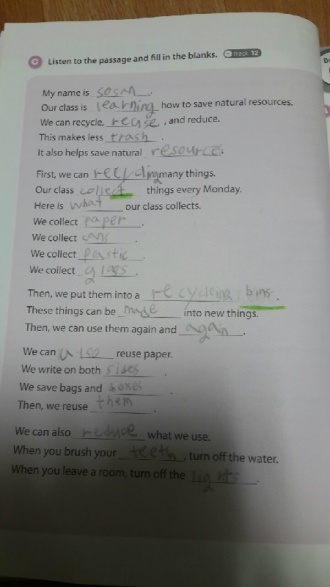 C Listen to the passage and fill in the blanks. track 12
My name is sosan.
Our class is learning how to save natural resources.
We can recycle, reuse, and reduce.
This makes less trash.
It also helps save natural resources.
First, we can recycling many things.
Our class collect things every Monday.
Here is what our class collects.
We collect paper.
We collect cans.
We collect plastic.
We collect glass.
Then, we put them into a recycling bins.
These things can be made into new things.
Then, we can use them again and again.
We can also reuse paper.
We write on both sides.
We save bags and boxes.
Then, we reuse them.
We can also reduce what we use.
When you brush your teeth, turn off the water.
When you leave a room, turn off the lights.